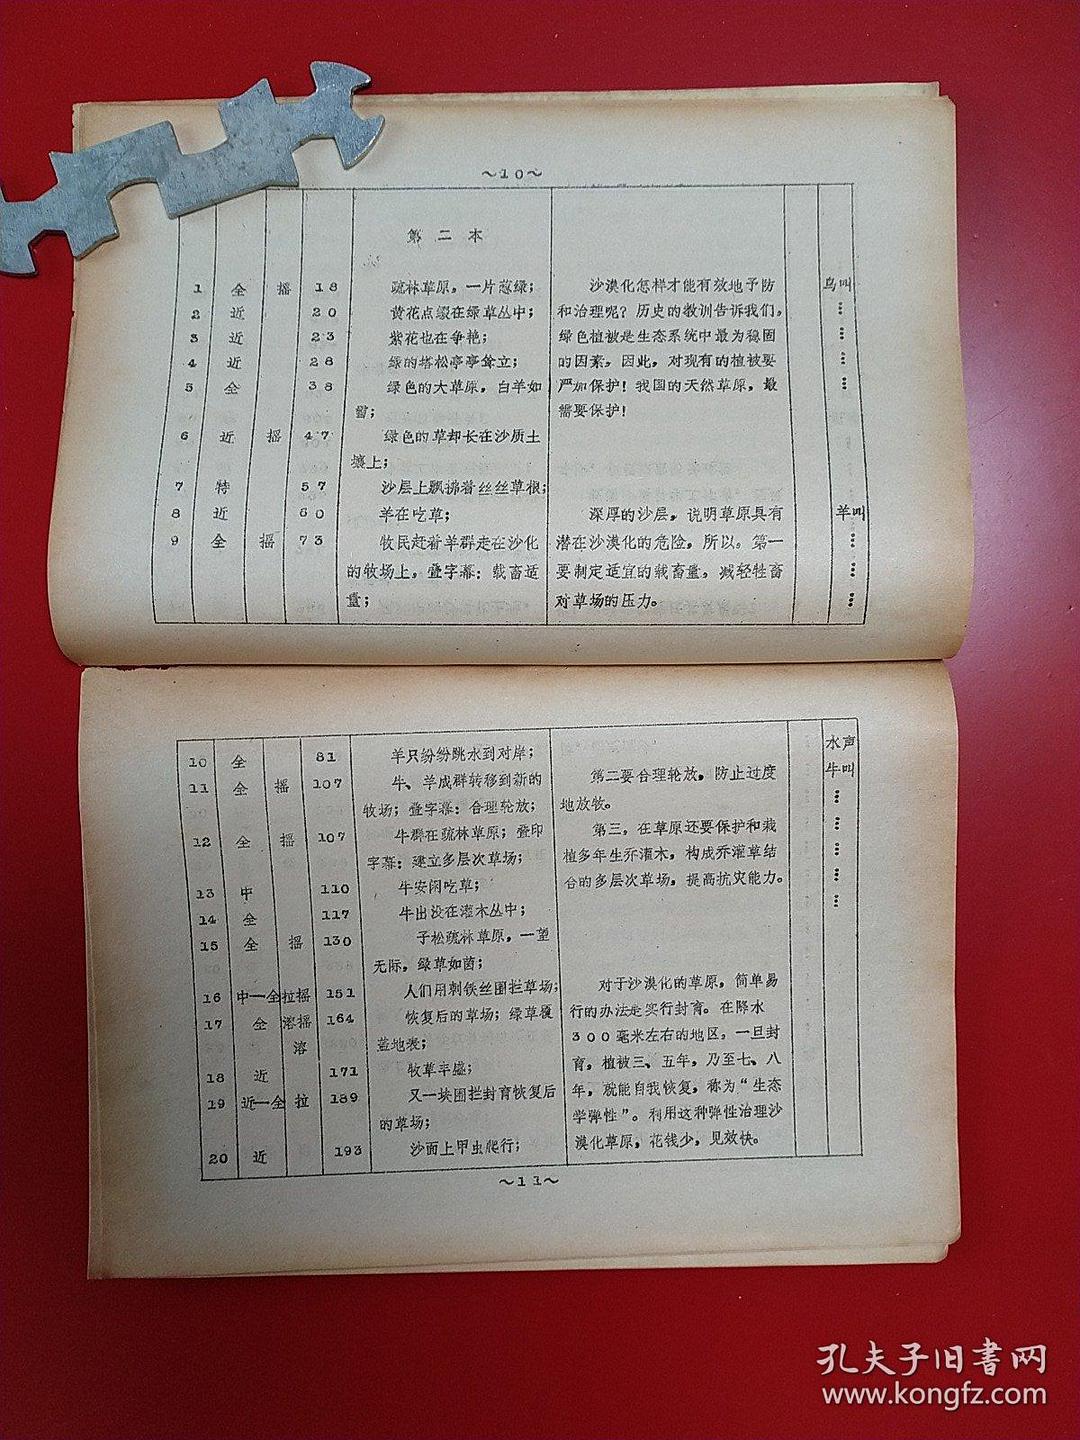 ～10～
第二本
1 全 摇 18 疏林草原，一片葱绿； 沙漠化怎样才能有效地予防 鸟叫
2 近 20 黄花点缀在绿草丛中； 和治理呢？历史的教训告诉我们，
3 近 23 紫花也在争艳； 绿色植被是生态系统中最为稳固
4 近 28 绿的塔松亭亭耸立； 的因素。因此，对现有的植被要
5 全 38 绿色的大草原，白羊如 严加保护！我国的天然草原，最
雪； 需要保护！
6 近 摇 47 绿色的草却长在沙质土
壤上；
7 特 57 沙层上飘拂着丝丝草根；
8 近 60 羊在吃草； 深厚的沙层，说明草原具有 羊叫
9 全 摇 73 牧民赶着羊群走在沙化 潜在沙漠化的危险，所以。第一
的牧场上，叠字幕：载畜适 要制定适宜的载畜量，减轻牲畜
量； 对草场的压力。
10 全 81 羊只纷纷跳水到对岸； 水声
11 全 摇 107 牛、羊成群转移到新的 第二要合理轮放，防止过度 牛叫
牧场；叠字幕：合理轮放； 地放牧。
12 全 摇 107 牛群在疏林草原；叠印 第三，在草原还要保护和栽
字幕：建立多层次草场； 植多年生乔灌木，构成乔灌草结
13 中 110 牛安闲吃草； 合的多层次草场，提高抗灾能力。
14 全 117 牛出没在灌木丛中；
15 全 摇 130 子松疏林草原，一望
无际，绿草如茵；
16 中—全 拉摇 151 人们用刺铁丝围拦草场； 对于沙漠化的草原，简单易
17 全 溶摇 164 恢复后的草场；绿草覆 行的办法是实行封育。在降水
溶 盖地表； 300毫米左右的地区，一旦封
18 近 171 牧草丰盛； 育，植被三、五年，乃至七、八
19 近—全 拉 189 又一块围拦封育恢复后 年，就能自我恢复，称为“生态
的草场； 学弹性”。利用这种弹性治理沙
20 近 193 沙面上甲虫爬行； 漠化草原，花钱少，见效快。
～11～
孔夫子旧書网
www.kongfz.com